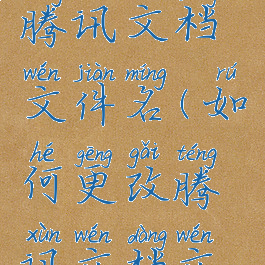 腾讯文档
wén jiàn míng rú
文件名(如
hé gēng gǎi téng
何更改腾
xùn wén dàng wén
讯文档文